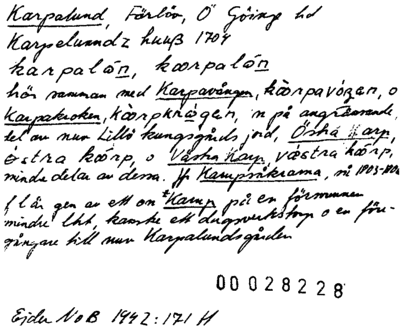 Karpalund, Färlöv, Ö Göinge hd
Karpelunndz huuß 1704
karpalón, kærpalón
hör samman med Karpavången, kàrpavógen, o
Karpakroken, kàrpkrògen, n på angränsande
del av nuv Lillö kungsgårds jord, Östra Karp,
östra kàrp, o Västra Karp, västra kàrp,
mindre delar av dessa. Jf Kamprökrama,
f l är gen av ett on *Karp på en försvunnen
mindre lht, kanske ett dagsverkstorp o en före-
gångare till nuv Karpalundsgården
00028228
Ejder NoB 1942:171 H